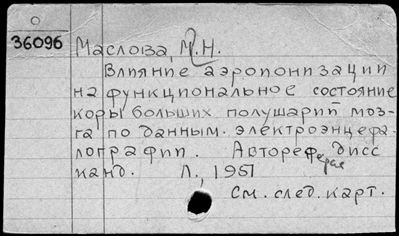 36096
Маслова, М.Н.
Влияние аэроионизации
на функциональное состояние
коры больших полушарий моз-
га по данным электроэнцефа-
лографии. Автореферат дисс
канд. Л., 1951
См. след. карт.